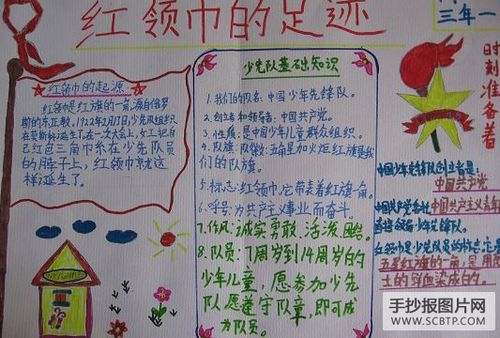 红领巾的足迹
三年一
时刻准备着
红领巾的起源
红领巾是红旗的一角,源自俄罗
斯的东正教,1922年2月7日,少先组织
在莫斯科诞生了,在一次大会上,女工把自
己红色三角巾系在少先队员
的脖子上,红领巾就这
样诞生了。
少先队基础知识
1.我们的队名:中国少年先锋队。
2.创立者和领导者:中国共产党。
3.性质:是中国少年儿童群众组织。
4.队旗、队徽:五角星加火炬红旗是我
们的队旗。
5.标志:红领巾,它带表着红旗一角。
6.呼号:为共产主义事业而奋斗。
7.作风:诚实、勇敢、活泼、团结。
8.队员:7周岁到14周岁的
少年儿童,愿参加少先
队愿遵守队章,即可成
为队员。
中国少年先锋队创立者是:
中国共产党
中国共产党委托中国共产主义青年
直接领导少年先锋队。
红领巾是少先队员的标志,它是
五星红旗的一角,是用烈
士的鲜血染成的。
手抄报图片网
WWW.SCBTP.COM